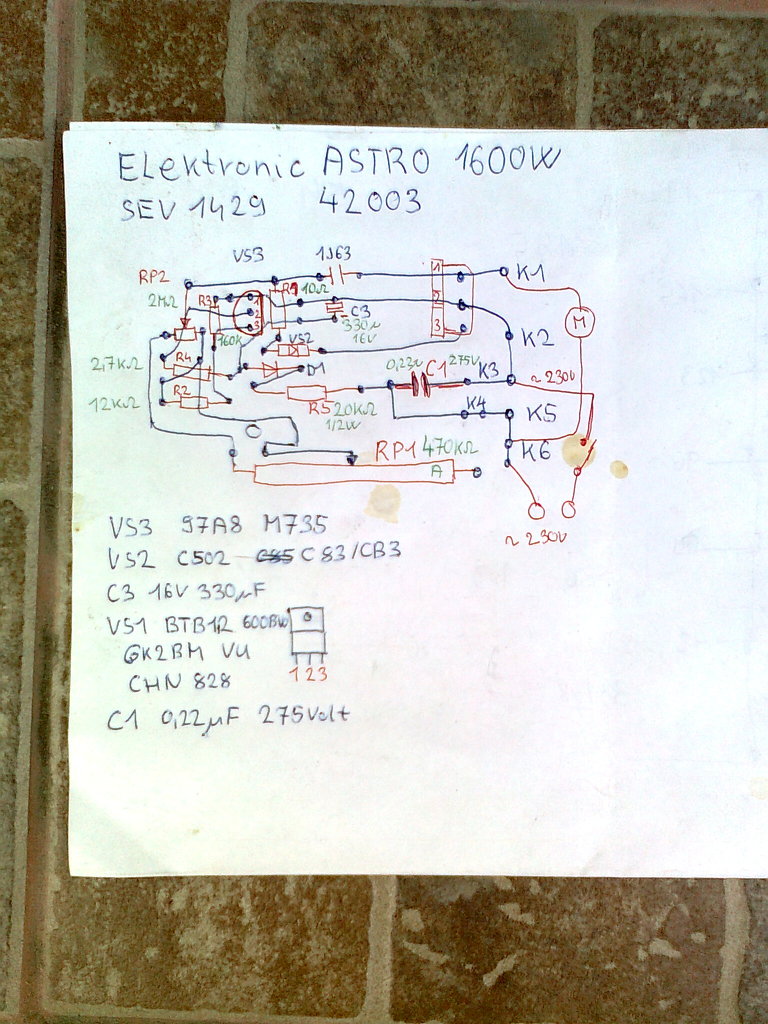 ELektronic ASTRO 1600W
SEV 1429 42003
VS3 1J63
RP2 K1
2MΩ R3 1 10Ω 1
2 C3 2 M
3 330µ 16V 3
160K VS2 K2
2,7KΩ R4 D1 0,22µ C1 275V K3 ~230V
12KΩ R2 R5 20KΩ K4 K5
1/2W
RP1 470KΩ K6
A
~230V
VS3 97A8 M735
VS2 C502 C83/CB3
C3 16V 330µF
VS1 BTB12 600BW
GK2BM VU
CHN 828
123
C1 0,22µF 275Volt